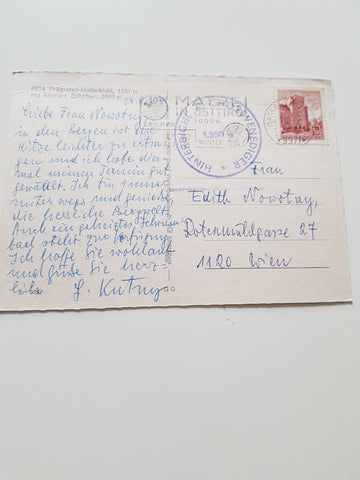 9974 Prägraten-Hinterbichl, 1331 m
mit kleinem
Liebe Frau Nowotny
in den Bergen ist die
Hitze leichter zu ertra-
gen und ich habe dies
mal meinen Termin gut
gewählt. Ich bin immer
unterwegs und genieße
die herrliche Bergwelt.
Auch ein geheiztes Schwimm
bad steht zur Verfügung
Ich hoffe Sie wohlauf
und grüße Sie herz-
lichst
MATREI
IN OSTTIROL
1000 m
WINTER
HINTERBICHL
1.350 m
VENEDIGER
Frau
Edith Nowotny
Rotenmühlgasse 27
1120 Wien